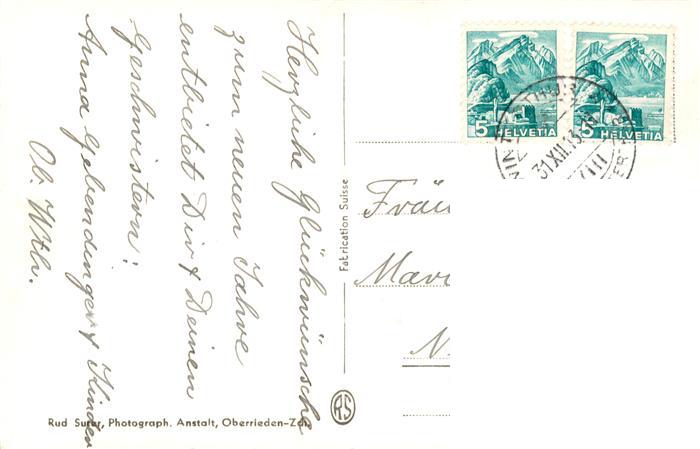 Herzliche Glückwünsche
zum neuen Jahre
entbietet Dir & Deinen
Geschwistern:
Anna Gebendinger & Kinder
Ob. Wthr.
Fabrication Suisse
RS
Rud Suter, Photograph. Anstalt, Oberrieden-Zch.
5 HELVETIA
5 HELVETIA
31.XII.43
Fräu
Mar
N.